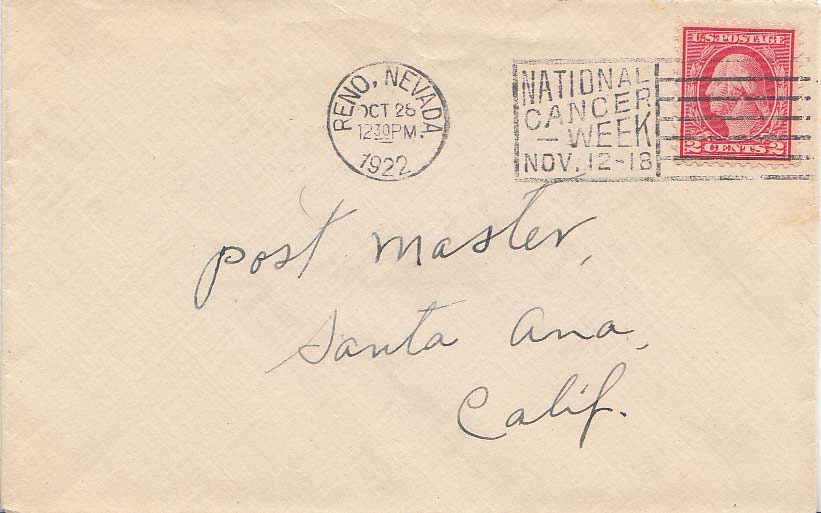 U.S.POSTAGE
2 CENTS 2
RENO, NEVADA
OCT 26
1230PM.
1922
NATIONAL
CANCER
— WEEK
NOV. 12-18
Post Master,
Santa Ana,
Calif.